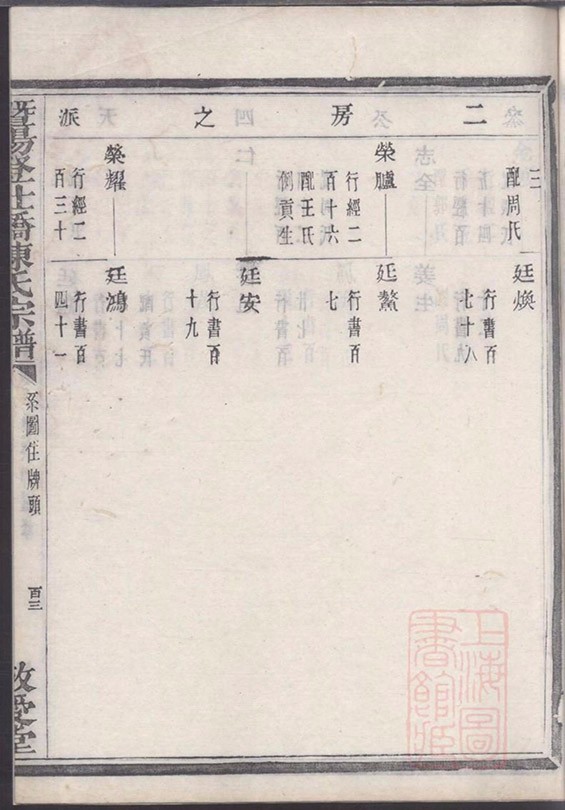 二房之派
三
配周氏
廷煥
行書百
七十八
榮臚
行經二
百十六
配王氏
例貢生
廷鰲
行書百
七
廷安
行書百
十九
榮耀
行經二
百三十
廷鴻
行書百
四十一
暨陽登仕橋陳氏宗譜
系圖住牌頭
百三
敬愛堂
上海圖書館藏